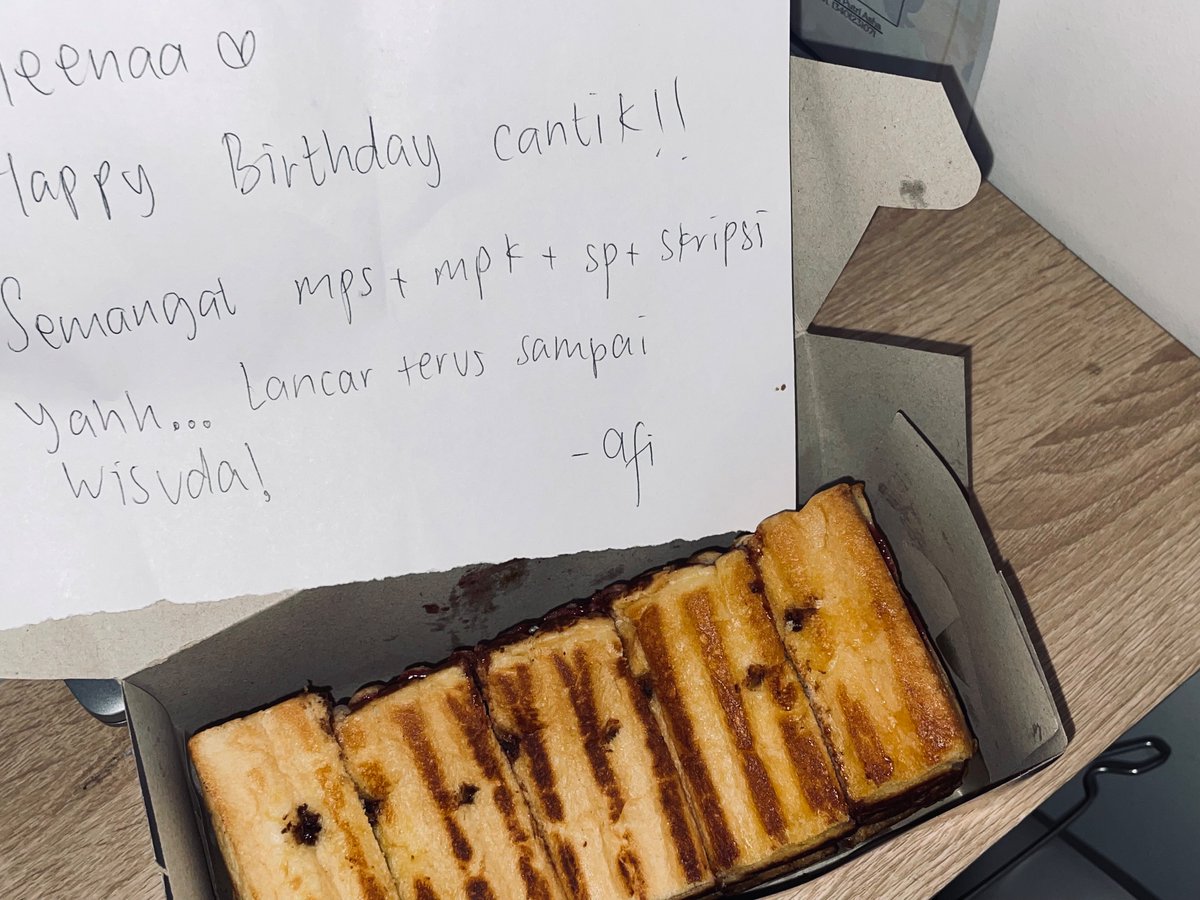 leenaa
Happy Birthday cantik!!
Semangat mps + mpk + sp + skripsi
yahh... lancar terus sampai
wisuda!
- afi
Putri Asha